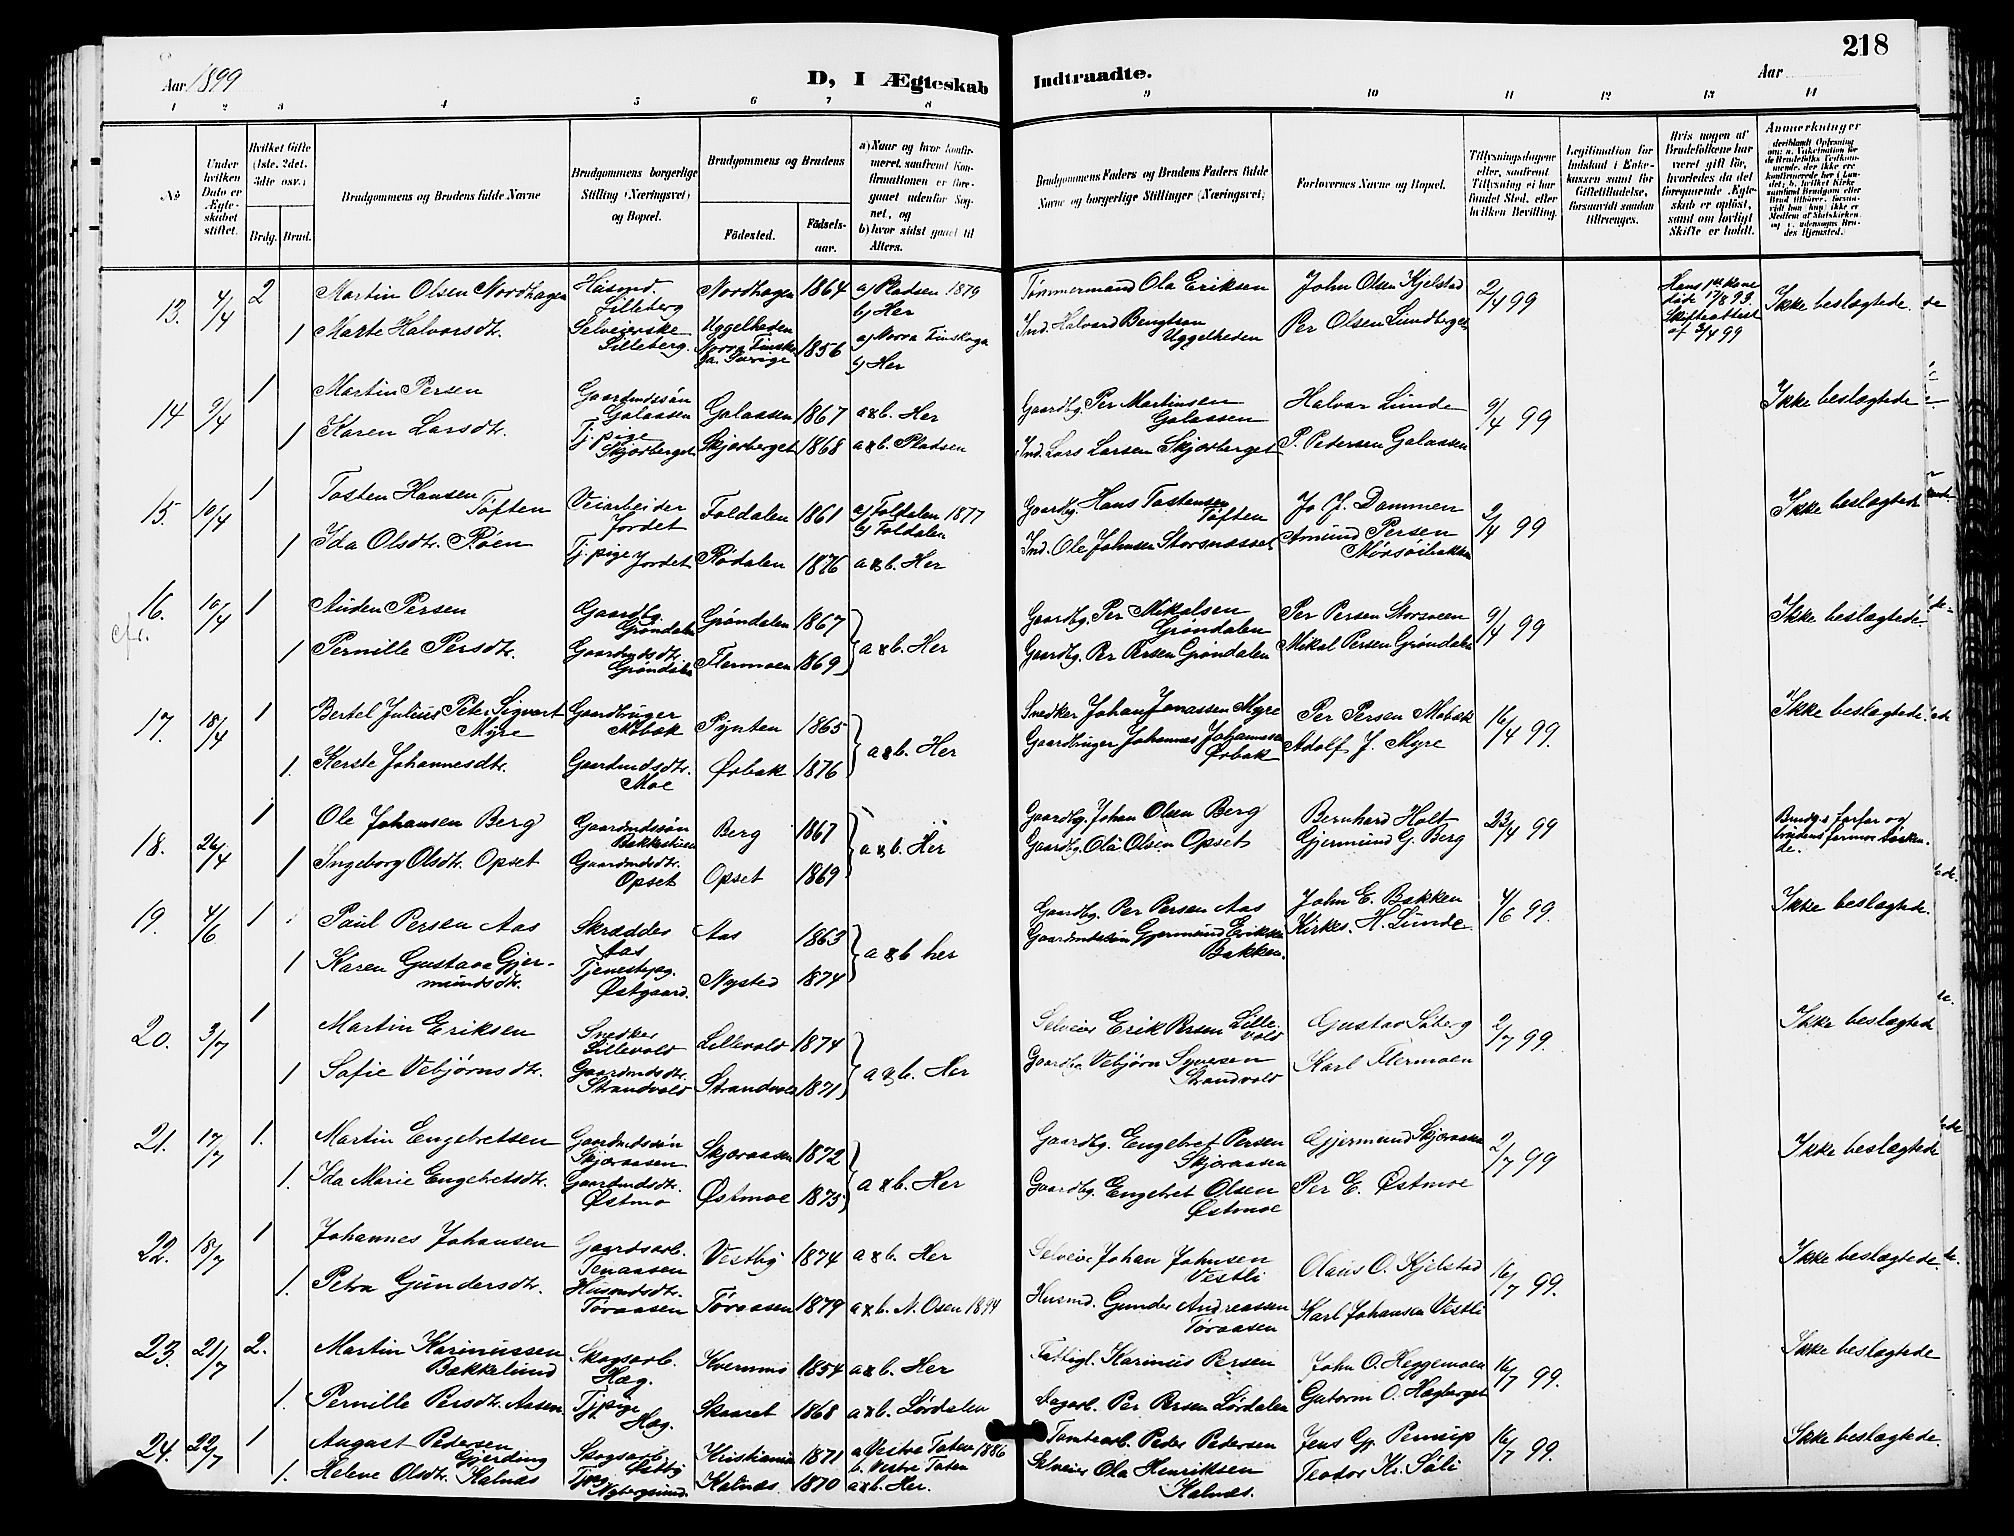 218
Aar 1899
D, I Ægteskab Indtraadte.
Aar
1 2 3 4 5 6 7 8 9 10 11 12 13 14
No
Under hvilken Dato er Ægteskabet stiftet.
Hvilket Gifte (1ste. 2det. 3die osv.)
Brdg. Brud.
Brudgommens og Brudens fulde Navne
Brudgommens borgerlige Stilling (Næringsvei) og Bopæl.
Brudgommens og Brudens
Fødested.
Fødselsaar.
a) Naar og hvor konfirmeret, saafremt Konfirmationen er foregaaet udenfor Sognet, og
b) hvor sidst gaaet til Alters.
Brudgommens Faders og Brudens Faders fulde Navne og borgerlige Stillinger (Næringsvei)
Forlovernes Navne og Bopæl.
Tillysningsdagene eller, saafremt Tillysning ei har fundet Sted, efter hvilken Bevilling.
Legitimation for Indskud i Enkekassen samt for Giftetilladelse, forsaavidt saadan tiltrænges.
Hvis nogen af Brudefolkene har været gift før, hvorledes da det foregaaende Ægteskab er opløst, samt om lovligt Skifte er holdt.
Anmerkninger
13. 4/4 2 Martin Olsen Nordhagen Husmd. Lilleberg Nordhagen 1864 a) Pladsen 1879 b) Her Tømmermand Ola Eriksen John Olsen Kjelstad 2/4 99 Hans 1st kone døde 17/8 93. Skifteattest af 3/4 99 Ikke beslægtede
1 Marte Halvorsdtr. Selveierske Lilleberg. Uggelheden Norra Finskoga Sverige 1856 a) Norra Finskoga b) Her Ind. Halvard Bengtson Uggelheden Per Olsen Lundberget
14 9/4 1 Martin Persen Gaardmdssøn Galaasen Galaasen 1867 a&b. Her Gaardbg. Per Martinsen Galaasen Halvar Lunde 9/4 99 Ikke beslægtede
1 Karen Larsdtr. Tj.pige Skjørberget Skjørberget 1868 a&b. Pladsen Ind. Lars Larsen Skjørberget P. Pedersen Galaasen
15. 10/4 1 Tosten Hansen Tøften Veiarbeider Jordet Foldalen 1861 a) Foldalen 1877 b) Foldalen Gaardbg. Hans Tostensen Tøften Jo J. Dammen 2/4 99 Ikke beslægtede
1 Ida Olsdtr. Røen Tj.pige Jordet Rødalen 1876 a&b. Her Ind. Ole Johnsen Storsnæsset Amund Persen Mørsøibakken
16. 10/4 1 Auden Persen Gaardbg. Grøndalen Grøndalen 1867 a&b. Her Gaardbg. Per Mikalsen Grøndalen Per Persen Storsveen 9/4 99 Ikke beslægtede
1 Pernille Persdtr. Gaardmdsdtr. Grøndalen Flermoen 1869 Gaardbg. Per Persen Grøndalen Mikal Persen Grøndalen
17. 18/4 1 Bertel Julius Peter Sigvart Myre Gaardbruger Mobæk Pynten 1865 a&b. Her Snedker Johan Jonassen Myre Per Persen Mobæk 16/4 99. Ikke beslægtede
1. Kerste Johannesdtr. Gaardmdsdtr. Moe Ørbæk 1876 Gaardbruger Johannes Johannesen Ørbæk Adolf J. Myre
18. 26/4 1 Ole Johansen Berg Gaardmdssøn Bakkestuen Berg 1867 a&b. Her Gaardbg. Johan Olsen Berg Bernhard Holt 23/4 99 Brudg.s farfar og brudens farmor søskende.
1 Ingeborg Olsdtr. Opset Gaardmdsdtr. Opset Opset 1869 Gaardbg. Ola Olsen Opset Gjermund G. Berg
19. 4/6 1 Paul Persen Aas Skrædder Aas Aas 1863 a&b her Gaardbg. Per Persen Aas John E. Bakken 4/6 99. Ikke beslægtede.
1 Karen Gustava Gjermundsdtr. Tjenestepg. Østgaard. Nysted 1874 Gaardmdssøn Gjermund Eriksen Bakken. Kirkes. H. Lunde
20. 3/7 1 Martin Eriksen Snedker Lillevold Lillevold 1874 a&b. Her Selveier Erik Persen Lillevold Gustav Søberg 2/7 99. Ikke beslægtede
1 Sofie Vebjørnsdtr. Gaardmdsdtr. Strandvold Strandvold 1871 Gaardbg. Vebjørn Syversen Strandvold Karl Flermoen
21. 17/7 1. Martin Engebretsen Gaardmdssøn Skjæraasen Skjæraasen 1872 a&b. Her Gaardbg. Engebret Persen Skjæraasen Gjermund Skjæraasen 2/7 99 Ikke beslægtede
1. Ida Marie Engebretsdtr. Gaardmdsdtr. Østmo Østmoe 1875 Gaardbg. Engebret Olsen Østmoe Per E. Østmoe
22. 18/7 1 Johannes Johansen Gaardsarb. Tenaasen Vestby 1874 a&b. Her Selveier Johan Johnsen Vestli Olaus O. Kjelstad 16/7 99. Ikke beslægtede.
1. Petra Gundersdtr. Husmdsdtr. Tøraasen Tøraasen 1879 a&b. N. Osen 1894 Husmd. Gunder Andreassen Tøraasen Karl Johansen Vestli
23. 21/7 2. Martin Karinussen Bakkelund Skogsarb. Hæg. Kvernmo 1854 a&b. Her Fattigl. Karinus Persen John O. Heggemoen 16/7 99. Ikke beslægtede
1. Pernille Persdtr. Aasen Tj.pige Hæg. Skaaret 1868 a&b. Lørdalen Dagarb. Per Persen Lørdalen Gutorm O. Hægberget
24. 22/7 1 August Pedersen Gjerding Skogsarb. Kristiania 1871 a. Vestre Toten 1886 b. Vestre Toten Tomtearb. Peder Pedersen Jens Gj. Perrup 16/7 99. Ikke beslægtede.
1. Helene Olsdtr. Kalnæs Tj.pg. Nybergsund. Kalnæs 1870 a&b. Her. Selveier Ola Henriksen Kalnæs. Teodor Kr. Søli